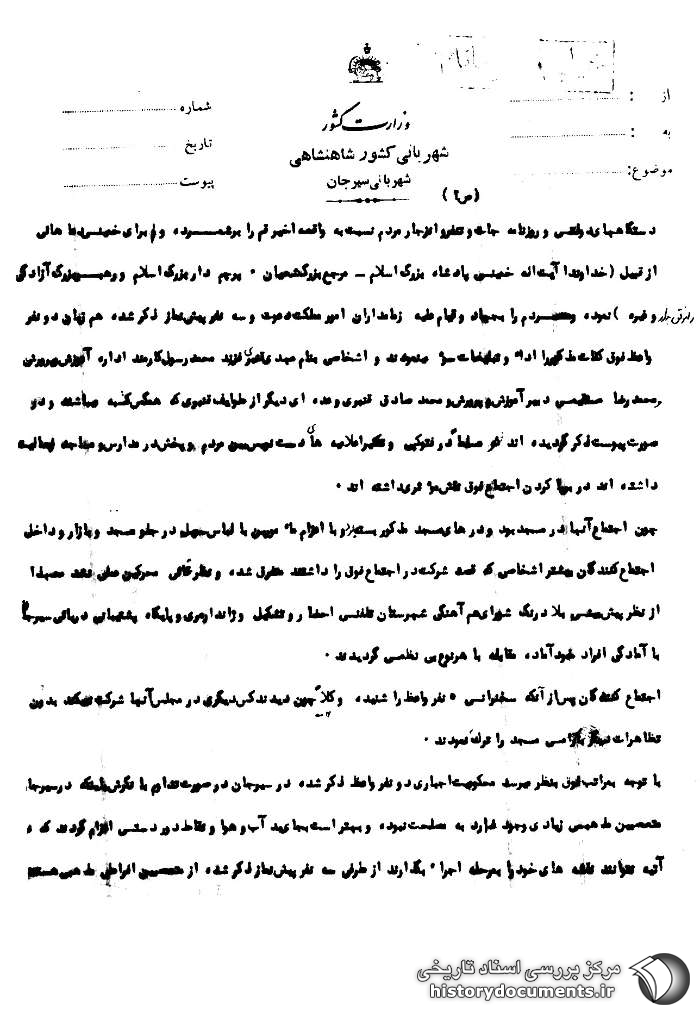 از :
شماره
وزارت کشور
به :
تاریخ
شهربانی کشور شاهنشاهی
موضوع:
پیوست
شهربانی سیرجان
(ص۲)
دستگاههای دولتی و روزنامه جات و تنفر و انزجار مردم نسبت به واقعه اخیر قم را برشمرده و برای خمینی
از قبیل (خداوندا آیت اله خمینی پادشاه بزرگ اسلام – مرجع بزرگ شیعیان ۰ پرچم دار بزرگ اسلام و رهبر بزرگ آزادگی
و غیره ) نموده و مردم را بجهاد و قیام علیه زمامداران امور مملکت دعوت و سه نفر پیش نماز ذکر شده هم زمان دو نفر
واعظ فوق کلمات مذکور را ادا و تبلیغات سوء مینمودند و اشخاصی بنام مهدی فرزند محمد رسول کارمند اداره آموزش و پرورش
محمدرضا دبیر آموزش و پرورش و محمد صادق قنبری و عده ای دیگر از طوایف قنبری که همگی کسبه میباشند و در
صورت پیوست ذکر گردیده اند در فتوکپی و تکثیر اعلامیه های دست نویس بین مردم و پخش در مدارس و مساجد فعالیت
داشته اند در برپا کردن اجتماع فوق نقش موثری داشته اند ۰
چون اجتماع آنها در مسجد بود و درهای مسجد مذکور بسته و با اعزام مامورین با لباس سیویل در جلو مسجد و بازار و داخل
اجتماع کنندگان بیشتر اشخاصی که قصد شرکت در اجتماع فوق را داشتند متفرق شده و محرکین عملی نشد معهذا
از نظر پیش بینی بلادرنگ شورای هم آهنگی شهرستان تلفنی احضار و تشکیل و ژاندارمری و پایگاه پشتیبانی دریائی سیرجان
با آمادگی افراد خود آماده مقابله با هر نوع بی نظمی گردیدند ۰
اجتماع کنندگان پس از آنکه سخنرانی ۵ نفر واعظ را شنیده و کلا چون دیدند کس دیگری در مجلس آنها شرکت نمیکند بدون
تظاهرات مسجد را ترک نمودند ۰
با توجه بمراتب فوق بنظر میرسد محکومیت اجباری دو نفر واعظ ذکر شده در سیرجان در صورت تداوم با نگرش باینکه در سیرجان
متعصبین مذهبی زیادی وجود دارد به مصلحت نبوده و بهتر است بجای بد آب و هوا و نقاط دور دستی اعزام گردند که در
آتیه نتوانند نقشه های خود را بمرحله اجرا بگذارند از طرفی سه نفر پیش نماز ذکر شده از متعصبین افراطی مذهبی هستند
مرکز بررسی اسناد تاریخی
historydocuments.ir